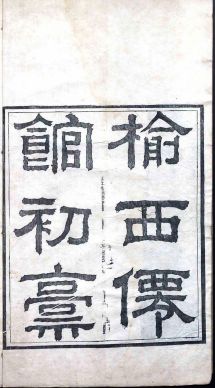 榆西僊
館初藳